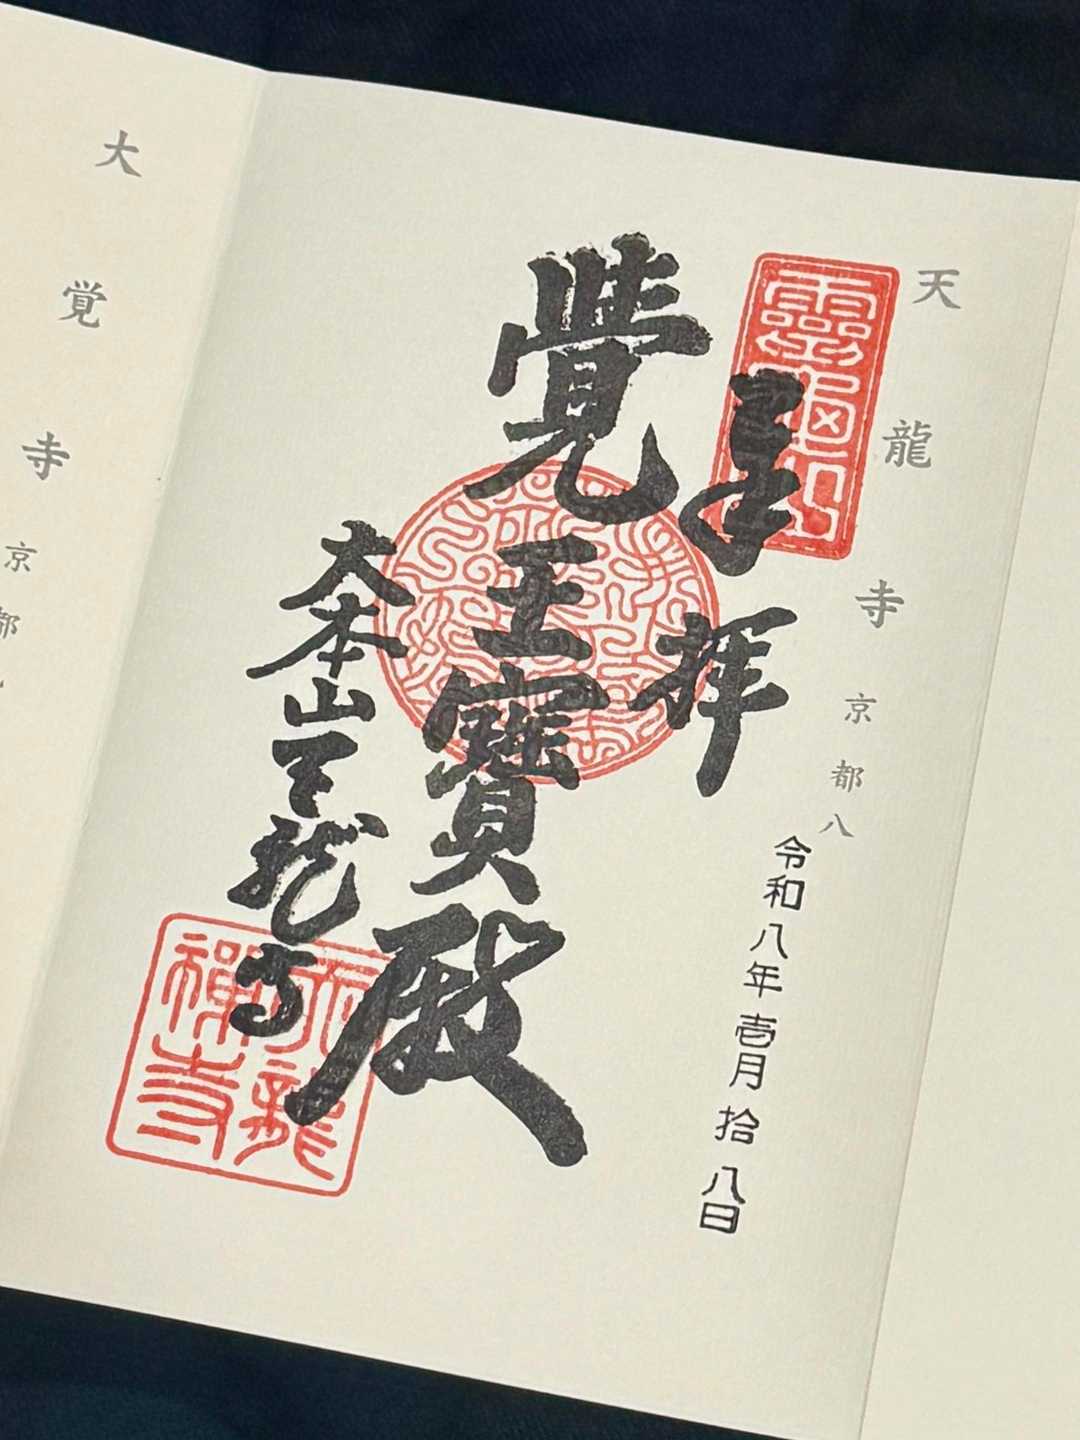 天龍寺 京都八
令和八年壱月拾八日
靈龜山
奉拝
覺王寶殿
大本山天龍寺
天龍
禪寺
大覚寺 京都